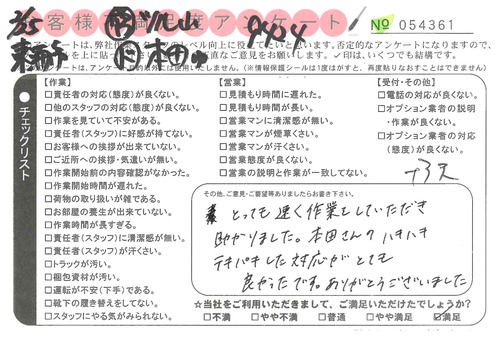 お客様満足度アンケート
№ 054361
3/25
9434
本田
アンケートは、弊社
レベル向上に役立てたいと思います。否定的なアンケートになりますので、
直なご意見をお願いします。✓印は、いくつでも結構です。
チェックリスト
【作業】
□責任者の対応(態度)が良くない。
□他のスタッフの対応(態度)が良くない。
□作業を見ていて不安がある。
□責任者(スタッフ)に好感が持てない。
□お客様への挨拶が出来ていない。
□ご近所への挨拶・気遣いが無い。
□作業開始前の内容確認がなかった。
□作業開始時間が遅れた。
□荷物の取り扱いが雑である。
□お部屋の養生が出来ていない。
□作業時間が長すぎる。
□責任者(スタッフ)に清潔感が無い。
□責任者(スタッフ)が汗くさい。
□トラックが汚い。
□梱包資材が汚い。
□運転が不安(下手)である。
□靴下の履き替えをしてない。
□スタッフにやる気がみられない。
【営業】
□見積もり時間に遅れた。
□見積もり時間が長い。
□営業マンに清潔感が無い。
□営業マンが煙草くさい。
□営業マンが汗くさい。
□営業態度が良くない。
□営業の説明と作業が一致してない。
【受付・その他】
□電話の対応が良くない。
□オプション業者の説明
・作業が良くない。
□オプション業者の対応
(態度)が良くない。
その他、ご意見・ご要望等ありましたらお書き下さい。
とっても速く作業をしていただき
助かりました。本田さんのハキハキ
テキパキした対応がとても
良かったです。ありがとうございました
☆当社をご利用いただきまして、ご満足いただけたでしょうか?
□不満 □やや不満 □普通 □やや満足 ☑満足